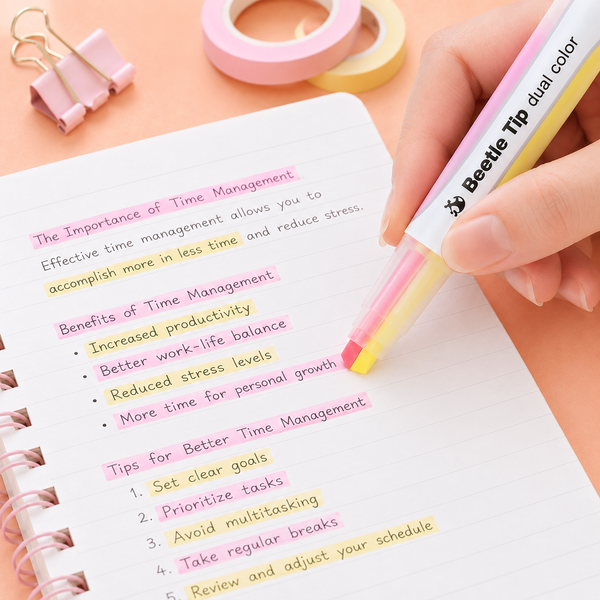 The Importance of Time Management
Effective time management allows you to
accomplish more in less time and reduce stress.
Benefits of Time Management
• Increased productivity
• Better work-life balance
• Reduced stress levels
• More time for personal growth
Tips for Better Time Management
1. Set clear goals
2. Prioritize tasks
3. Avoid multitasking
4. Take regular breaks
5. Review and adjust your schedule
Beetle Tip dual color